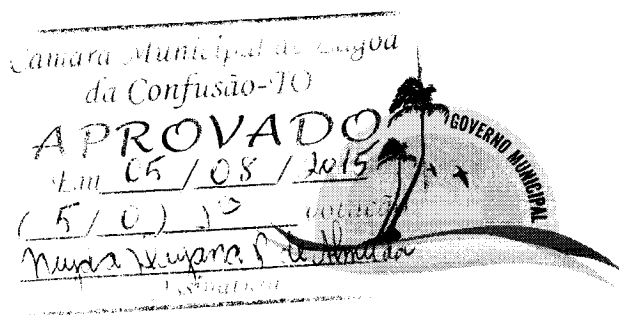 Câmara Municipal de Lagoa
da Confusão-TO
APROVADO
Em 05 / 08 / 2015
( 5 / 0 ) 1ª votação
de Almeida
Assinatura
GOVERNO MUNICIPAL